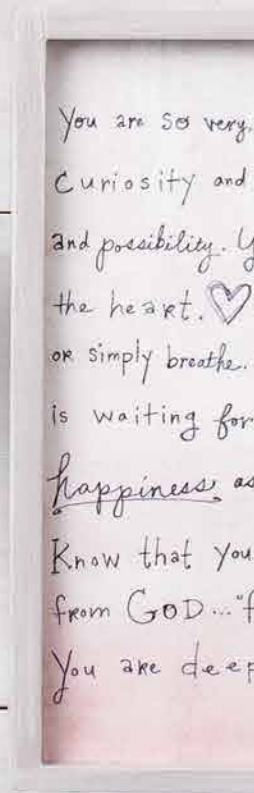 You are so very
Curiosity and
and possibility.
the heart.
or simply breathe.
is waiting for
happiness as
Know that you
from GOD..."f
You are deep